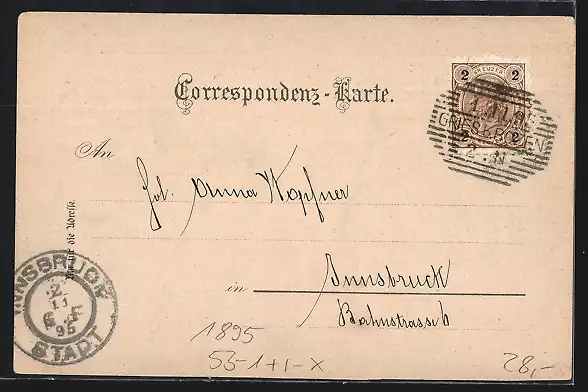 2 KREUZER 2
Correspondenz-Karte.
GRIES B. BOZEN
2 11
An
Frl. Anna Kopfner
Nur für die Adresse.
in Innsbruck
Bahnstrasse 6
INNSBRUCK
2
11
6 F
95
STADT
1895
55-1+1-X
28,-